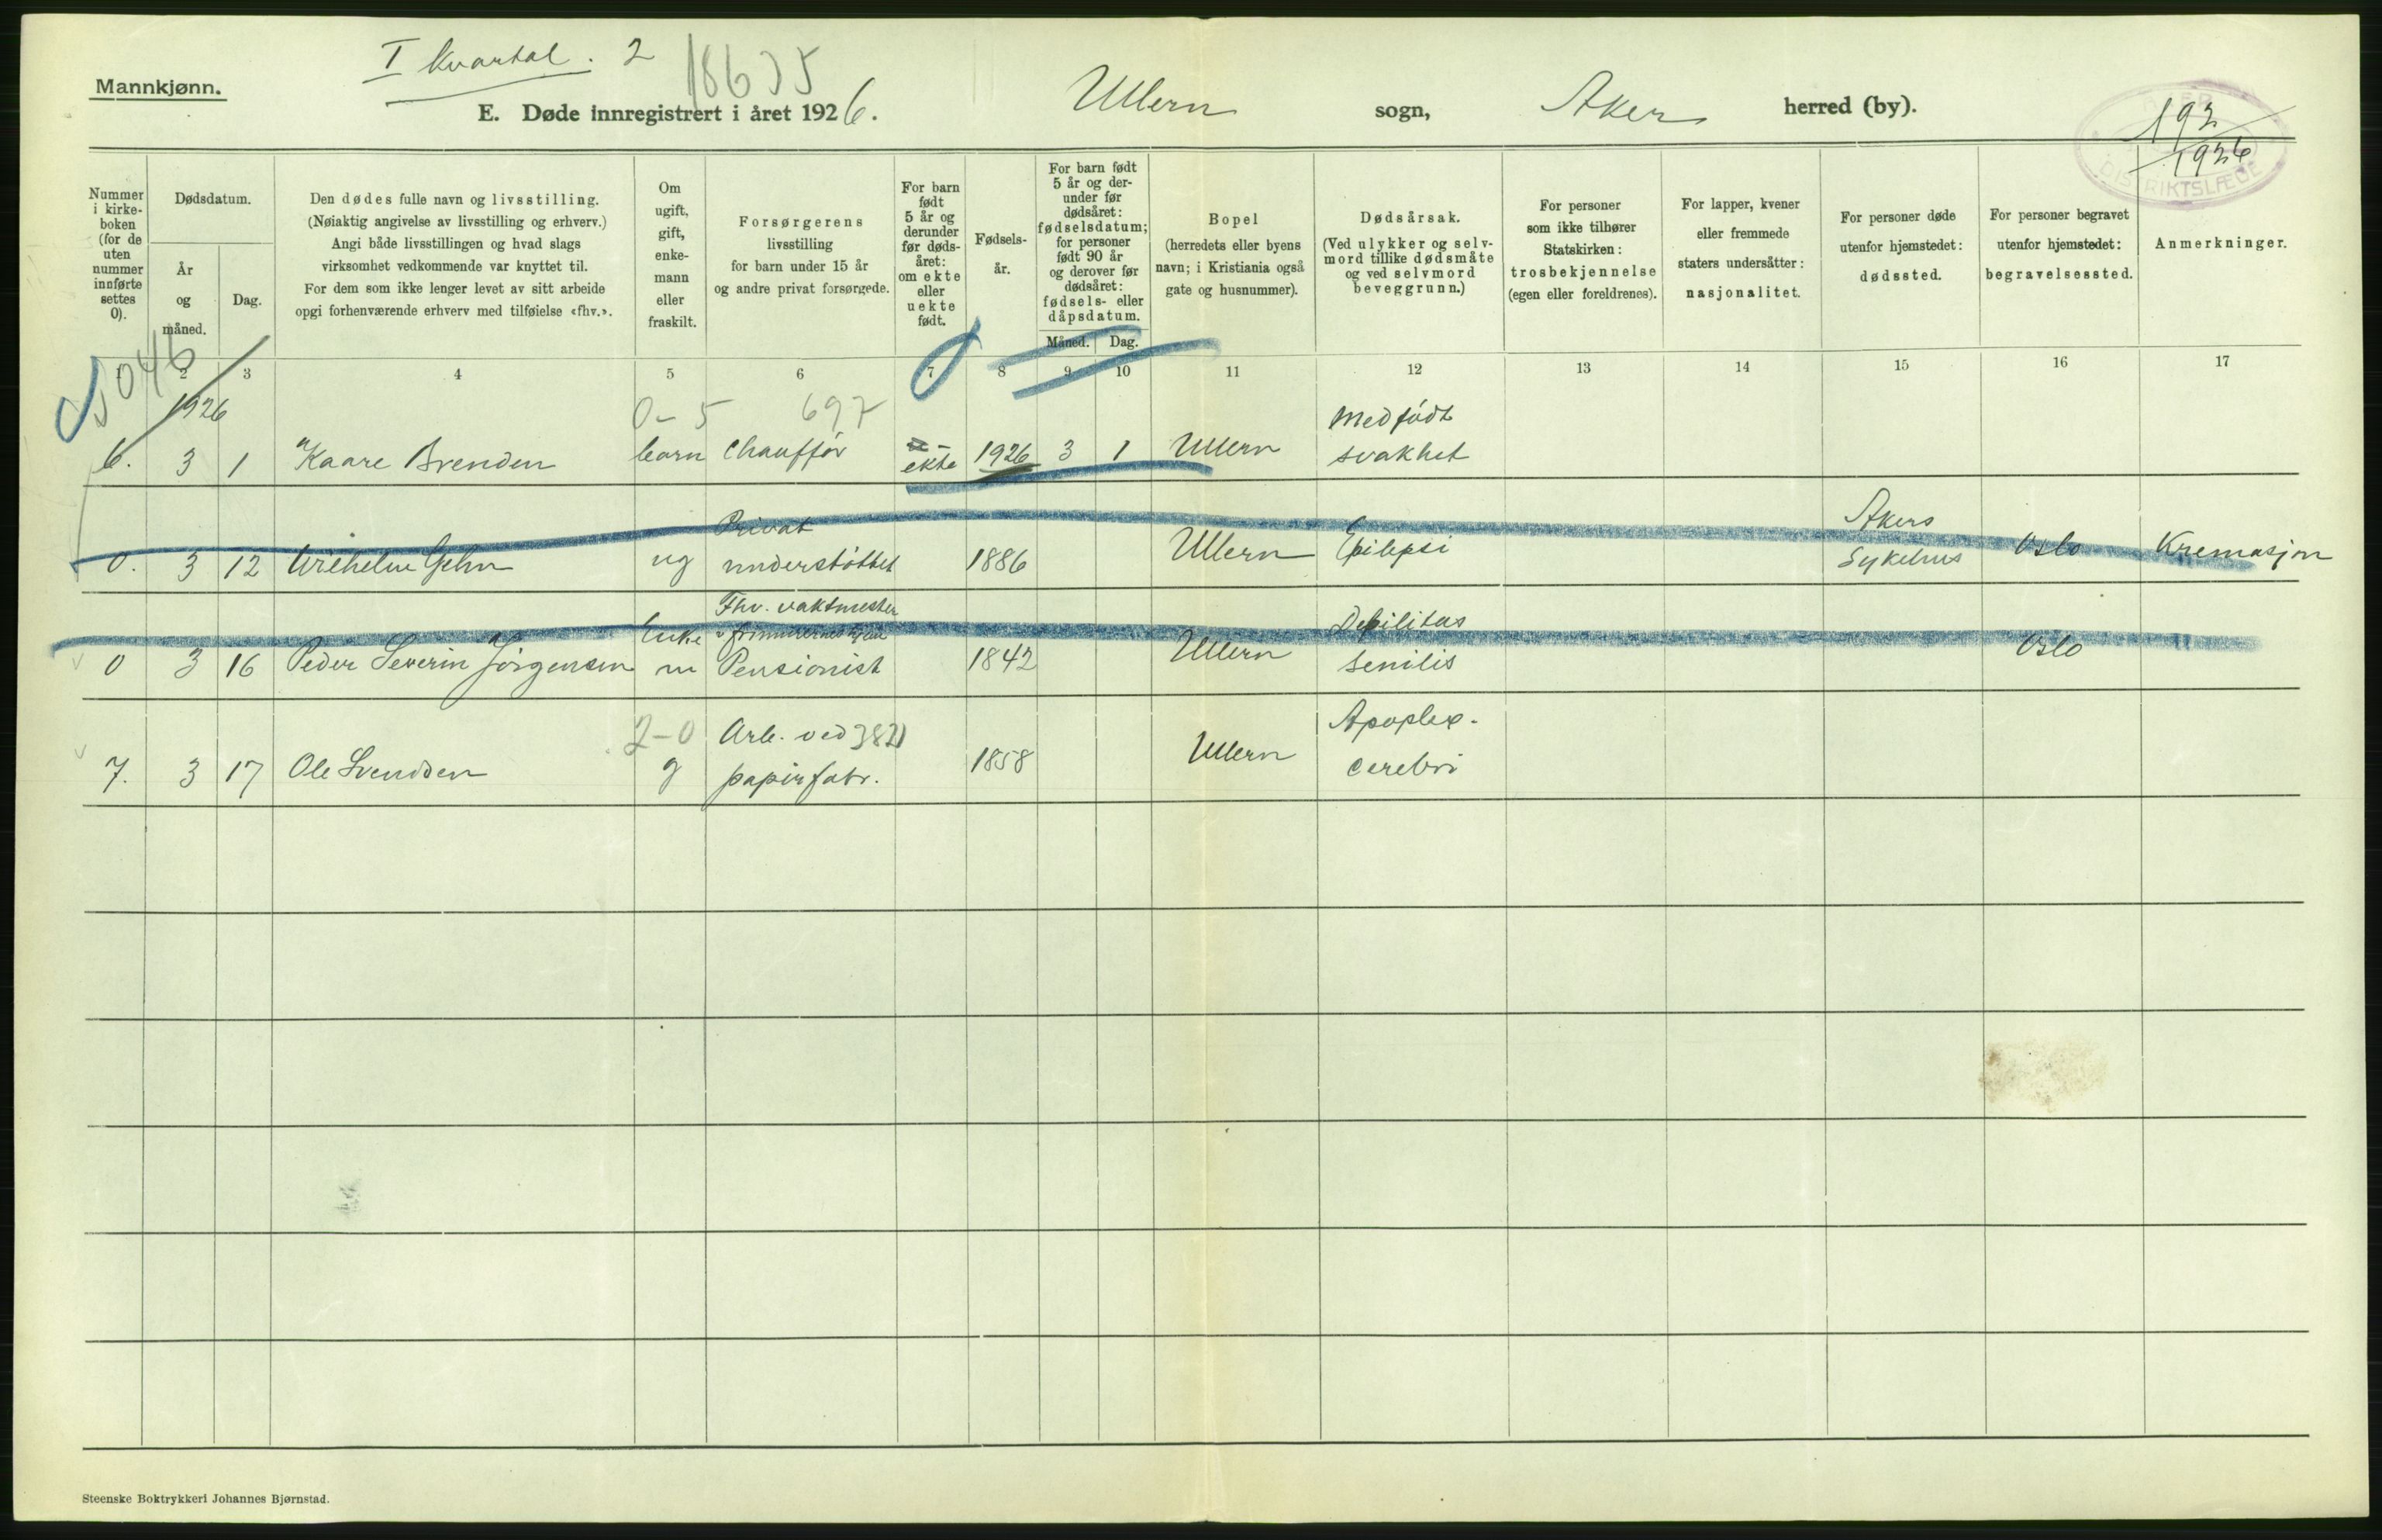 I kvartal. 2
18635
Mannkjønn.
E. Døde innregistrert i året 1926.
Ullern sogn, Aker herred (by).
192
1926
DISTRIKTSLÆGE
Nummer i kirke-boken (for de uten nummer innførte settes 0).
Dødsdatum.
År og måned.
Dag.
Den dødes fulle navn og livsstilling.
(Nøiaktig angivelse av livsstilling og erhverv.)
Angi både livsstillingen og hvad slags
virksomhet vedkommende var knyttet til.
For dem som ikke lenger levet av sitt arbeide
opgi forhenværende erhverv med tilføielse «fhv.».
Om ugift, gift, enke-mann eller fraskilt.
Forsørgerens
livsstilling
for barn under 15 år
og andre privat forsørgede.
For barn født 5 år og derunder før døds-året: om ekte eller uekte født.
Fødsels-år.
For barn født 5 år og der-under før dødsåret: fødselsdatum; for personer født 90 år og derover før dødsåret: fødsels- eller dåpsdatum.
Måned.
Dag.
Bopel
(herredets eller byens
navn; i Kristiania også
gate og husnummer).
Dødsårsak.
(Ved ulykker og selv-
mord tillike dødsmåte
og ved selvmord
beveggrunn.)
For personer
som ikke tilhører
Statskirken:
trosbekjennelse
(egen eller foreldrenes).
For lapper, kvener
eller fremmede
staters undersåtter:
nasjonalitet.
For personer døde
utenfor hjemstedet:
dødssted.
For personer begravet
utenfor hjemstedet:
begravelsessted.
Anmerkninger.
1 2 3 4 5 6 7 8 9 10 11 12 13 14 15 16 17
5046
1926
0-5 697
6. 3 1 Kaare Brenden barn Chauffør ekte 1926 3 1 Ullern Medfødt svakhet
0. 3 12 Wilhelm Gehn ug Privat understøttet 1886 Ullern Epilepsi Akers Sykehus Oslo Kremasjon
0 3 16 Peder Severin Jørgensen Enke m Fhv. vaktmester Pensionist 1842 Ullern Debilitas senilis Oslo "
2-0 3821
7. 3 17 Ole Svendsen g Arb. ved papirfabr. 1858 Ullern Apoplex. cerebri
Steenske Boktrykkeri Johannes Bjørnstad.